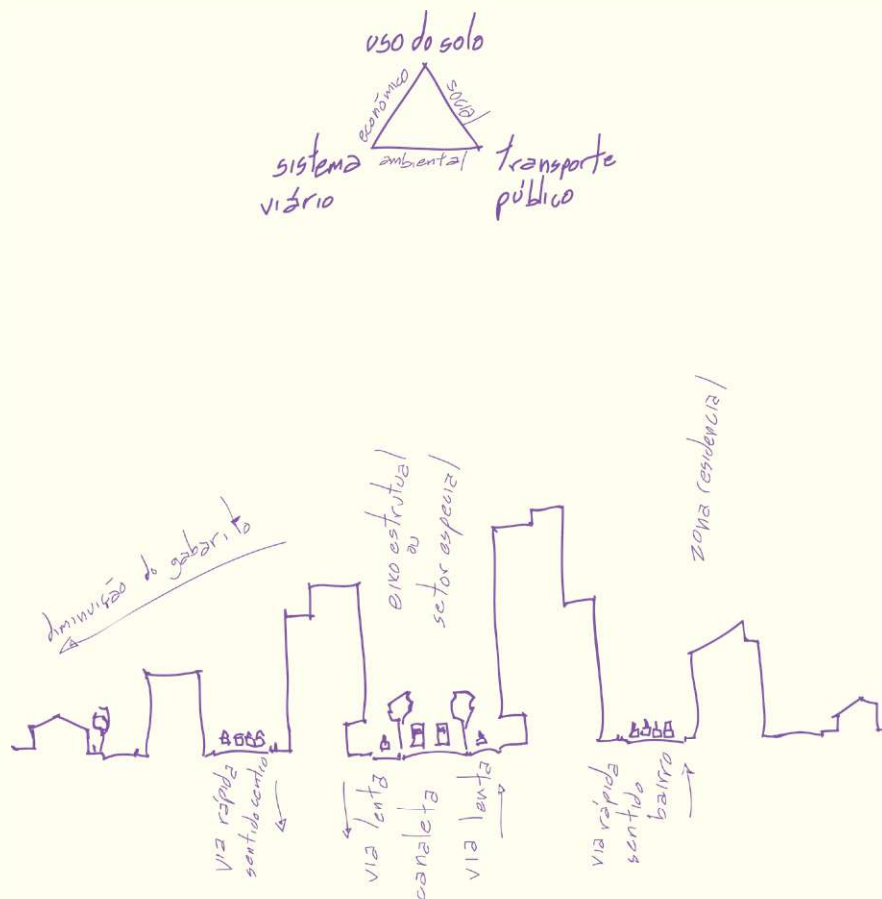 uso do solo
econômico
social
sistema
viário
ambiental
transporte
público
diminuição do gabarito
eixo estrutual
ou
setor especial
zona residencial
via rápida
sentido centro
via lenta
canaleta
via lenta
via rápida
sentido
bairro